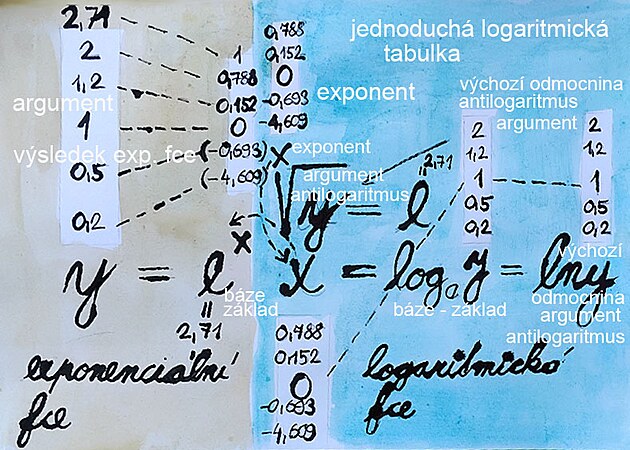 2,71
2
1,2
argument
1
výsledek exp. fce
0,5
0,2
1
0,788
0,152
0
(-0,693)
(-4,609)
x
y = e
báze
základ
2,71
exponenciální
fce
0,788
0,152
0
-0,693
-4,609
jednoduchá logaritmická
tabulka
exponent
výchozí odmocnina
antilogaritmus
argument
2
1,2
1
0,5
0,2
2
1,2
1
0,5
0,2
x exponent
argument
antilogaritmus
√y = e
2,71
x = log a y = ln y
báze - základ
výchozí
odmocnina
argument
antilogaritmus
0,788
0,152
0
-0,693
-4,609
logaritmická
fce